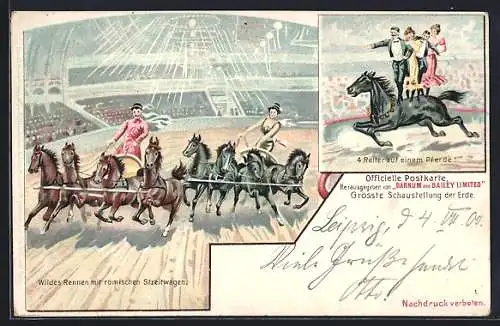 4 Reiter auf einem Pferde.
Officielle Postkarte,
Herausgegeben von „BARNUM AND BAILEY LIMITED”
Grösste Schaustellung der Erde.
Leipzig, d. 4. VII. 00.
Viele Grüße sendet
Otto!
Wildes Rennen mit römischen Streitwagen.
Nachdruck verboten.